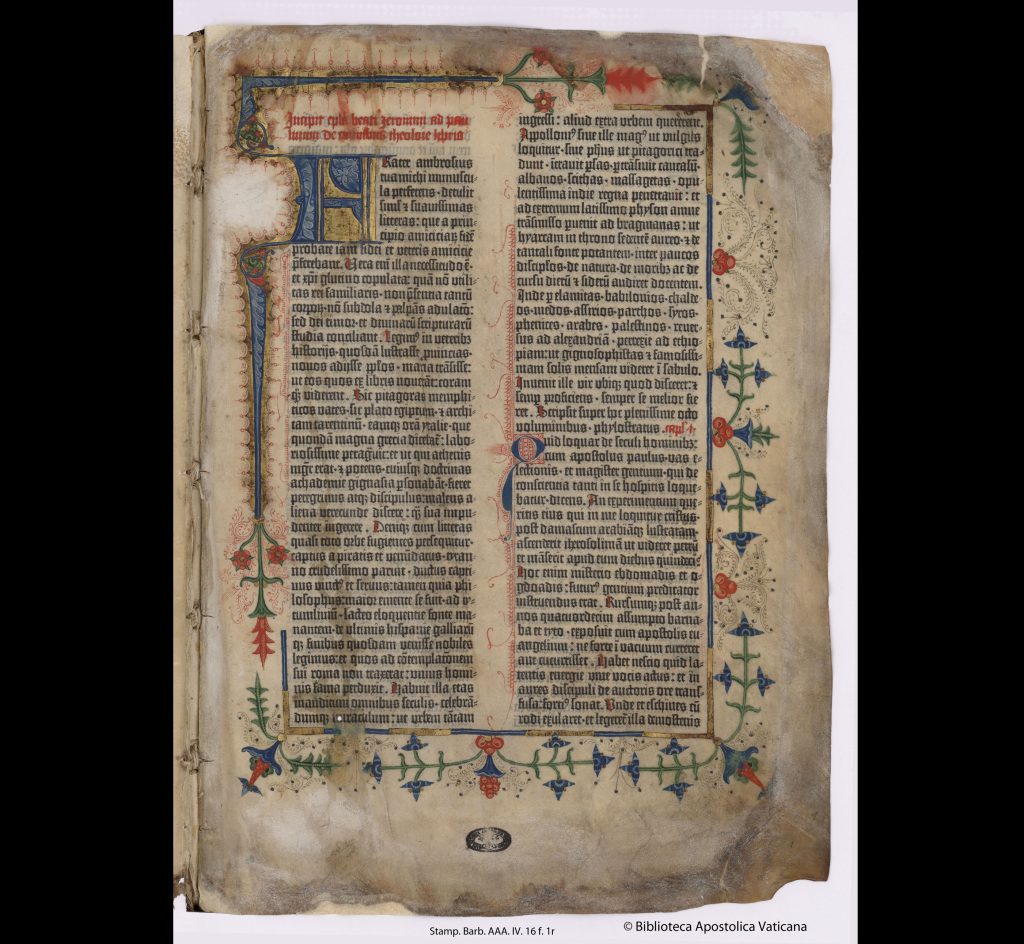 Incipit epl̄a beati Jeronimi ad pau
linum de omnibus theologie libris
Frater ambrosius
tua michi munuscu-
la perferens · detulit
sim̄l ⁊ suavissimas
litteras: que a prin-
cipio amiciciaꝝ fidē
probate iam fidei et veteris amicicie
p̄ferebant. Vera em̄ illa necessitudo ē ·
et xp̄i glutino copulata: quā nō utili-
tas rei familiaris · non p̄sentia tantū
corpoꝝ · nō subdola ⁊ palpās adulacō:
sed dei timor · et divinarū scripturarū
studia conciliant. Legim⁹ in veterib⁊
historijs · quosdā lustrasse ꝓvincias ·
novos adijsse pp̄los · maria trāsisse:
ut eos quos ex libris noverāt: coram
qꝫ viderent. Sic pitagoras memphi-
ticos vates · sic plato egiptum · ⁊ archi-
tam tarentinū · eamqꝫ orā ytalie · que
quondā magna grecia dicebat̄: labo-
riosissime peragͥvit: et ut qui athenis
mgr̄ erat · ⁊ potens · cuiusqꝫ doctrinas
achademie gignasia ꝑsonabāt · fieret
peregrinus atqꝫ discipulus: malens a-
liena verecunde discere: qꝫ sua impu-
denter ingerere. Deniqꝫ cum litteras
quasi toto orbe fugientes persequitur ·
captus a piratis et venūdatus · tyran-
no crudelissimo paruit · ductus capti-
vus vinct⁹ et servus: tamen quia phi-
losophus: maior emente se fuit · ad ty-
tumliviū · lacteo eloquentie fonte ma-
nantem · de ultimis hispanie galliarū
qꝫ finibus quosdam venisse nobiles
legimus: et quos ad cōtemplatōnem
sui roma non traxerat: unius homi-
nis fama perduxit. Habuit illa etas
inauditum omnibus seculis · celebrā-
dumqꝫ miraculum: ut urbem tātam
ingressi: aliud extra urbem quererent.
Apolloni⁹ sive ille mag⁹ ut vulgus
loquitur · sive ph̄us ut pitagorici tra-
dunt · intravit p̄sas · ꝑtrāsivit caucasū ·
albanos · scithas · massagetas · opu-
lentissima indie regna penetravit: et
ad extremum latissimo physon amne
trāsmisso ꝑvenit ad bragmanas: ut
hyarcam in throno sedentē aureo · ⁊ de
tantali fonte potantem · inter paucos
discip̄los · de natura · de moribꝫ ac de
cursu dierū ⁊ siderū audiret docentem.
Inde ꝑ elamitas · babilonios · chalde-
os · medos · assirios · parthos · syros ·
phenices · arabes · palestinos · rever-
sus ad alexandriā · perrexit ad ethio-
piam: ut gignosophistas ⁊ famosissi-
mam solis mensam videret ī sabulo.
Invenit ille vir ubiqꝫ quod disceret: ⁊
semꝑ proficiens · semper se melior fie-
ret. Scripsit super hoc plenissime octo
voluminibus · phylostratus. capl̄. I.
Quid loquar de seculi hominibꝫ:
cum apostolus paulus · vas e-
lectionis · et magister gentium · qui de
conscientia tanti in se hospitis loque-
batur · dicens. An experimentum que-
ritis eius qui in me loquitur cristus.
post damascum arabiāqꝫ lustratam ·
ascenderit iherosolimā ut videret petrū
et māserit apud eum diebus quindeci:
Hoc enim misterio ebdomadis et o-
gdoadis: futur⁹ gentium predicator
instruendus erat. Rursumqꝫ post an-
nos quatuordecim assumpto barna-
ba et tyto · exposuit cum apostolis eu-
angelium: ne forte ī vacuum curreret
aut cucurrisset. Habet nescio quid la-
tentis energie vive vocis actus: et in
aures discipuli de auctoris ore trans-
fusa: forci⁹ sonat. Unde et eschines cū
rodi exularet · et legeret̄ illa demostenis
Stamp. Barb. AAA. IV. 16 f. 1r
© Biblioteca Apostolica Vaticana